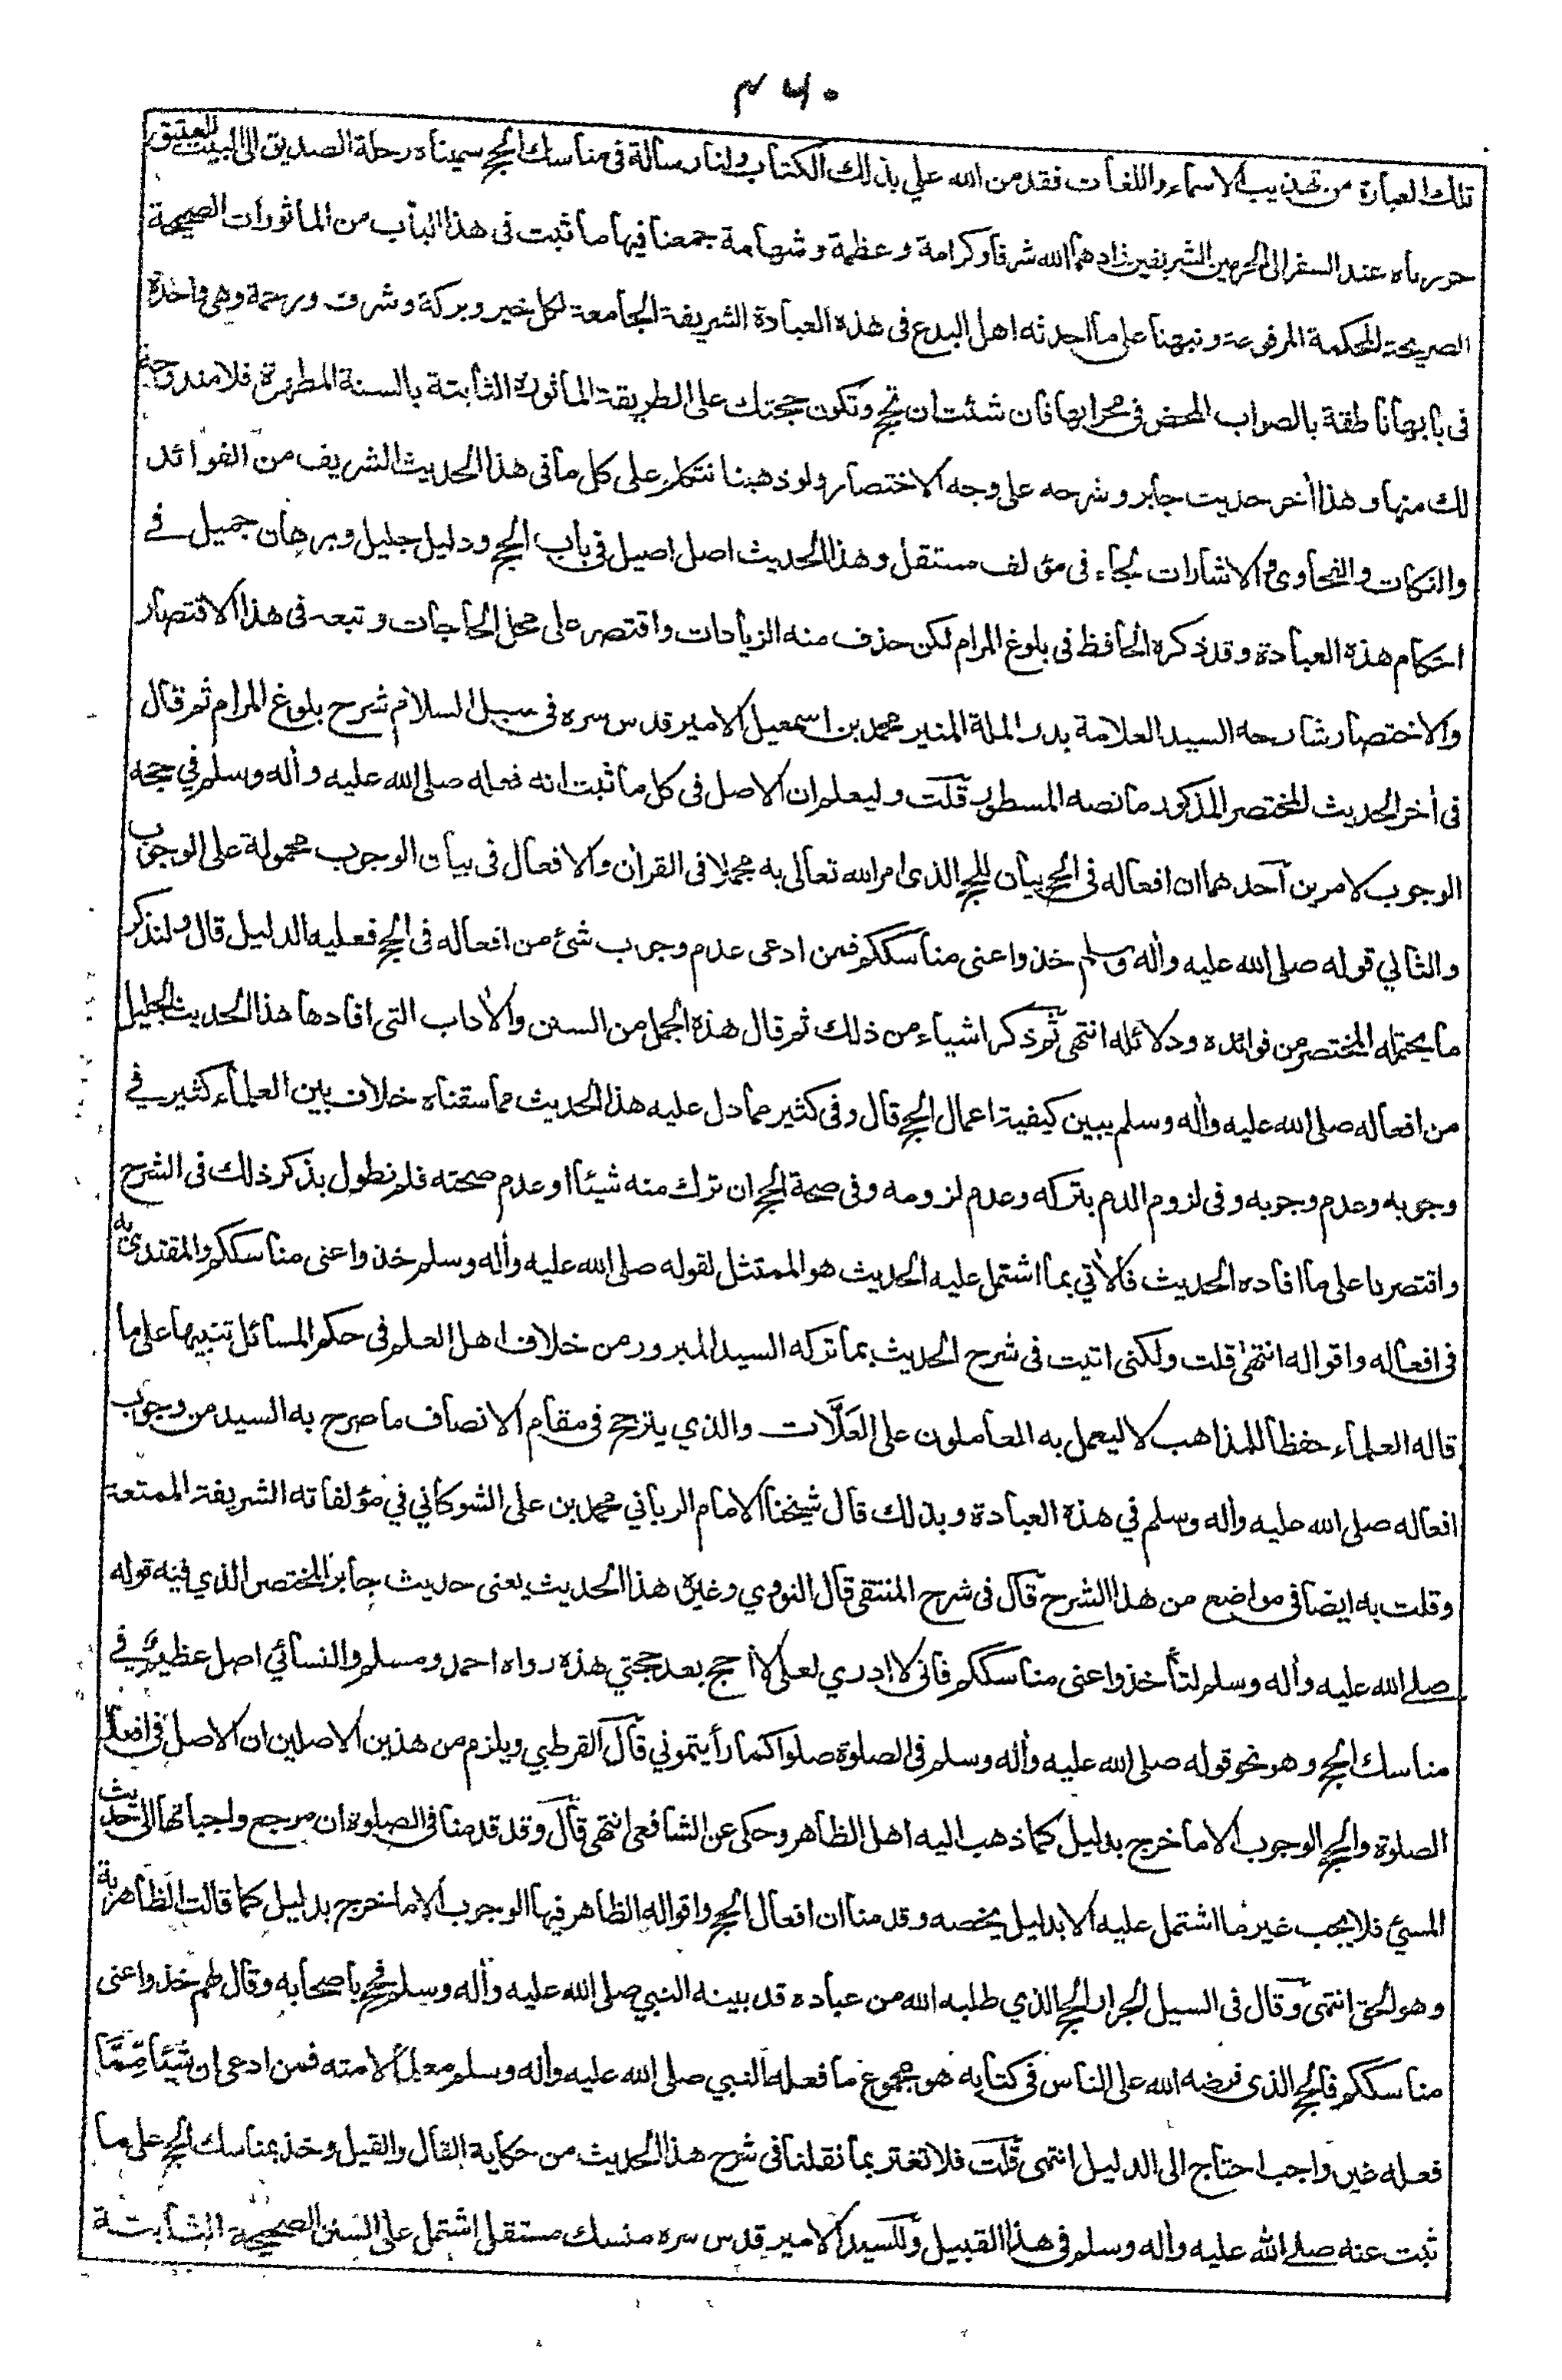 ٤٦٠
تلك العبارة من تهذيب الاسماء واللغات فقد من الله علي بذلك الكتاب ولنا رسالة فى مناسك الحج سميناه رحلة الصديق الى البيت العتيق
حررناه عند السفر الى الحرمين الشريفين زادهما الله شرفا وكرامة وعظمة وشهامة جمعنا فيها ما ثبت فى هذا الباب من الماثورات الصحيحة
الصريحة المحكمة المرفوعة ونبهنا على ما احدثه اهل البدع فى هذه العبادة الشريفة الجامعة لكل خير وبركة وشرف ورحمة وهى واخذة
فى بابها ناطقة بالصواب المحض فى محرابها فان شئت ان تحج وتكون حجتك على الطريقة الماثورة الثابتة بالسنة المطهرة فلا مندوحة
لك منها وهذا أخر حديث جابر وشرحه على وجه الاختصار ولو ذهبنا نتكلم على كل ما فى هذا الحديث الشريف من الفوائد
والنكات والفحاوى والاشارات لجاء فى مؤلف مستقل وهذا الحديث اصل اصيل فى باب الحج ودليل جليل وبرهان جميل في
احكام هذه العبادة وقد ذكره الحافظ فى بلوغ المرام لكن حذف منه الزيادات واقتصر على محل الحاجات وتبعه فى هذا الاقتصار
والاختصار شارحه السيد العلامة بدر الملة المنير محمد بن اسمعيل الامير قدس سره فى سبل السلام شرح بلوغ المرام ثم قال
فى أخر الحديث المختصر المذكور ما نصه المسطور قلت وليعلم ان الاصل فى كل ما ثبت انه فعله صلى الله عليه وأله وسلم في حجه
الوجوب لامرين آحدهما ان افعاله فى الحج بيان للحج الذى امر الله تعالى به مجملا فى القرأن والافعال فى بيان الوجوب محمولة على الوجوب
والثاني قوله صلى الله عليه وأله وسلم خذوا عنى مناسككم فمن ادعى عدم وجوب شئ من افعاله فى الحج فعليه الدليل قال ولنذكر
ما يحتمله المختصر من فوائده ودلائله انتهى ثم ذكر اشياء من ذلك ثم قال هذه الجمل من السنن والأداب التى افادها هذا الحديث الجليل
من افعاله صلى الله عليه وأله وسلم يبين كيفية اعمال الحج قال وفى كثير مما دل عليه هذا الحديث مما سقناه خلاف بين العلماء كثير في
وجوبه وعدم وجوبه وفى لزوم الدم بتركه وعدم لزومه وفى صحة الحج ان ترك منه شيئا او عدم صحته فلم نطول بذكر ذلك فى الشرح
واقتصرنا على ما افاده الحديث فالأتي بما اشتمل عليه الحديث هو الممتثل لقوله صلى الله عليه وأله وسلم خذوا عنى مناسككم والمقتدى به
فى افعاله واقواله انتهى قلت ولكنى اتيت فى شرح الحديث بما تركه السيد المبرور من خلاف اهل العلم فى حكم المسائل تنبيها على ما
قاله العلماء حفظا للمذاهب لا ليعمل به المعاملون على العَلَّات والذي يترجح فى مقام الانصاف ما صرح به السيد من وجوب
افعاله صلى الله عليه وأله وسلم في هذة العبادة وبذلك قال شيخنا الامام الرباني محمد بن على الشوكاني في مؤلفاته الشريفة الممتعة
وقلت به ايضا فى مواضع من هذا الشرح قال فى شرح المنتقى قال النووي وغيره هذا الحديث يعنى حديث جابر المختصر الذي فيه قوله
صلى الله عليه وأله وسلم لتأخذوا عنى مناسككم فانى لا ادري لعلى لا أحج بعد حجتي هذه رواه احمد ومسلم والنسائي اصل عظيم في
مناسك الحج وهو نحو قوله صلى الله عليه وأله وسلم فى الصلوة صلوا كما رأيتموني قال القرطبي ويلزم من هذين الاصلين ان الاصل فى افعال
الصلوة والحج الوجوب الا ما خرج بدليل كما ذهب اليه اهل الظاهر وحكى عن الشافعى انتهى قال وقد قدمنا فى الصلوة ان مرجع واجباتها الى حديث
المسئ فلا يجب غير ما اشتمل عليه الا بدليل يخصه وقدمنا ان افعال الحج واقواله الظاهر فيها الوجوب الا ما خرج بدليل كما قالت الظاهرية
وهو الحق انتهى وقال فى السيل الجرار الحج الذي طلبه الله من عباده قد بينه النبي صلى الله عليه وأله وسلم فحج باصحابه وقال لهم خذوا عنى
مناسككم فالحج الذى فرضه الله على الناس فى كتابه هو مجموع ما فعله النبي صلى الله عليه وأله وسلم معلما لامته فمن ادعى ان شيئا مِمَّا
فعله غير واجب احتاج الى الدليل انتهى قلت فلا تغتر بما نقلنا فى شرح هذا الحديث من حكاية القال والقيل وخذ بمناسك الحج على ما
ثبت عنه صلى الله عليه وأله وسلم فى هذا القبيل وللسيد الامير قدس سره منسك مستقل اشتمل على السنن الصحيحة الثابتة